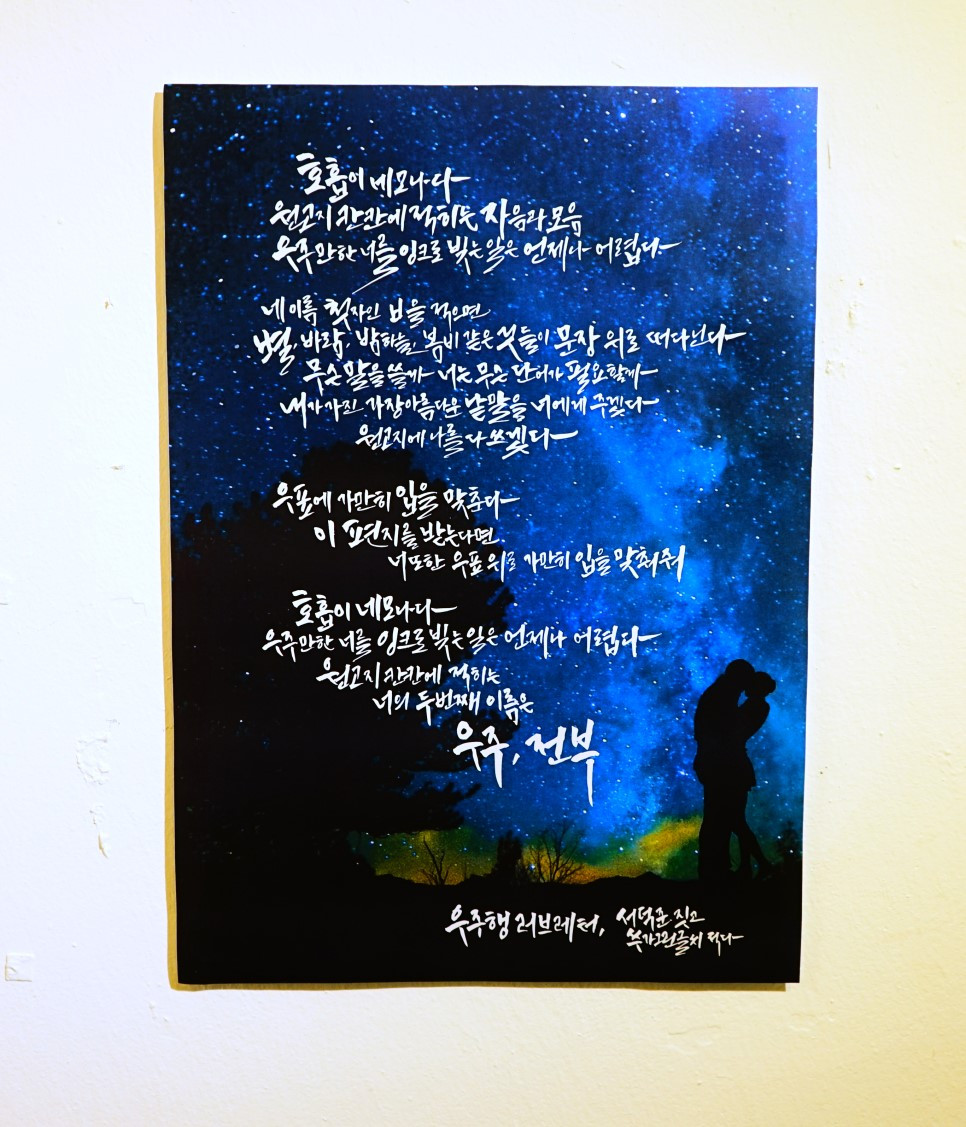 호흡이 네모나다
원고지 칸칸에 적히는 자음과 모음
우주만한 너를 잉크로 빚는 일은 언제나 어렵다
네 이름 첫 자인 ㅂ을 적으면
별, 바람, 밤하늘, 봄비 같은 것들이 문장 위로 떠다닌다
무슨 말을 쓸까 너는 무슨 단어가 필요할까
내가 가진 가장 아름다운 낱말을 너에게 주겠다
원고지에 나를 다 쏟겠다
우표에 가만히 입을 맞춘다
이 편지를 받는다면
너 또한 우표 위로 가만히 입을 맞춰줘
호흡이 네모나다
우주만한 너를 잉크로 빚는 일은 언제나 어렵다
원고지 칸칸에 적히는
너의 두번째 이름은
우주, 전부
우주행 러브레터, 서덕준 짓고
쓰가 그린글씨 적다